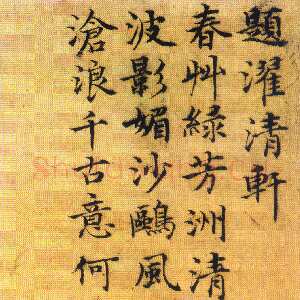 題濯清軒
春艸緑芳洲清
波影媚沙鷗風
滄浪千古意何